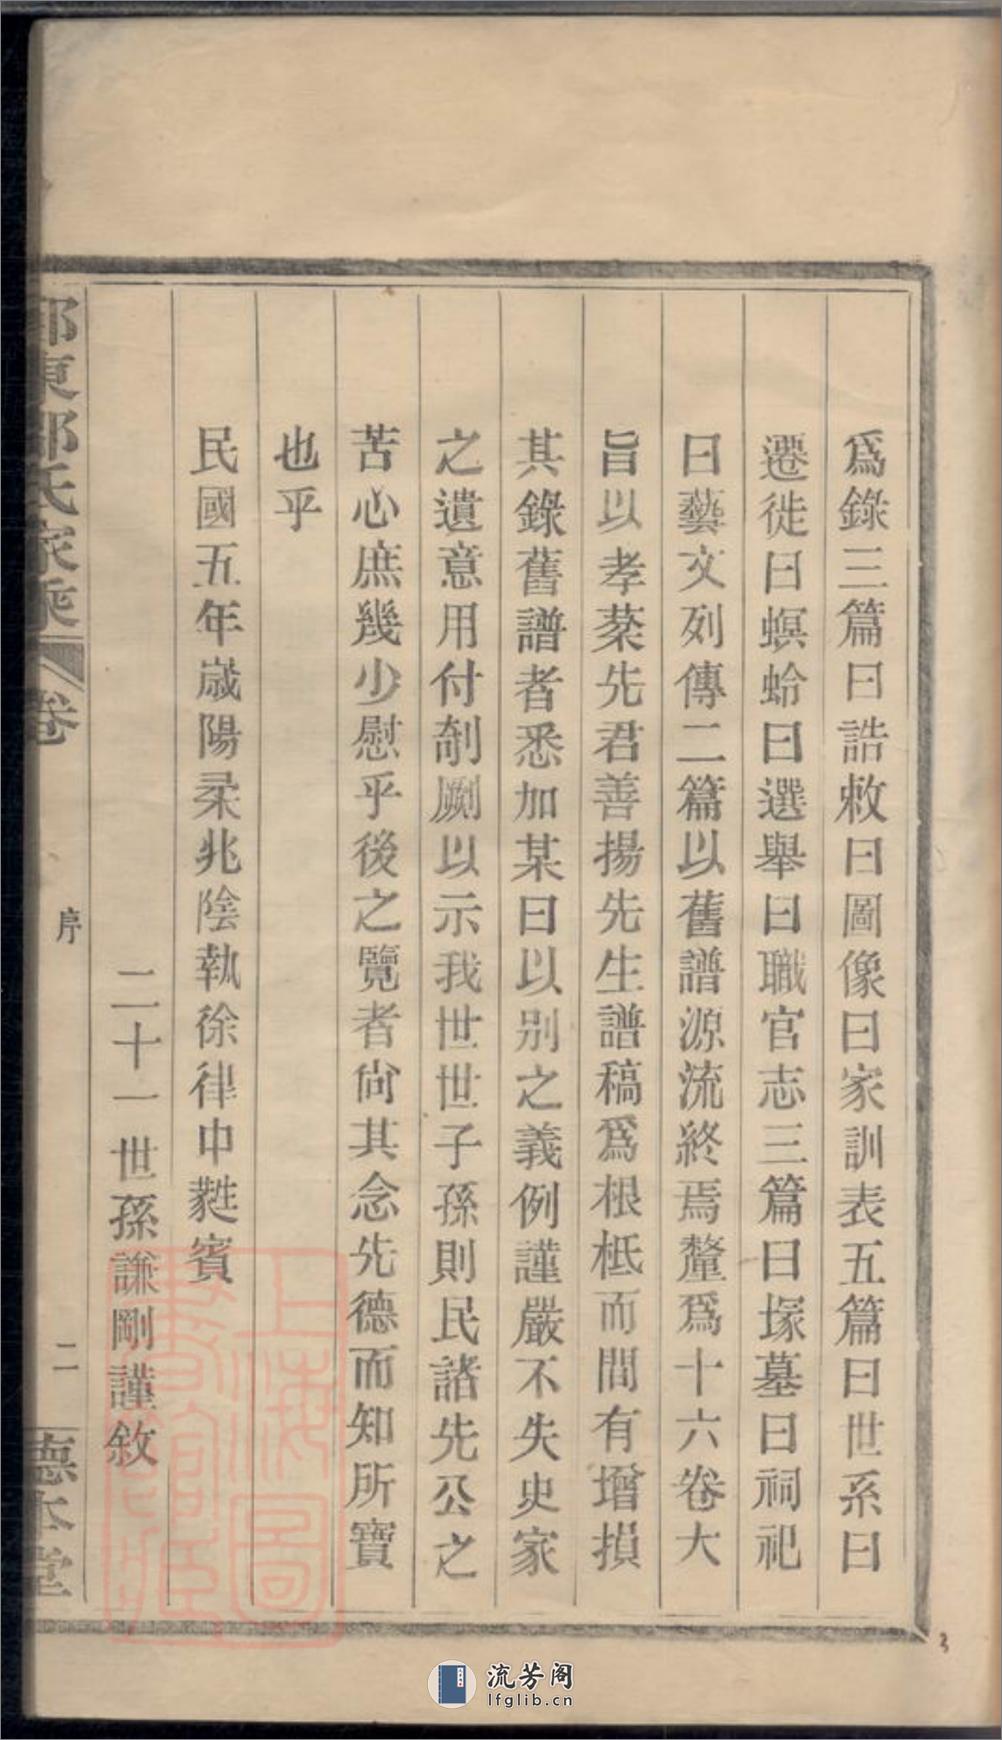 爲錄三篇曰誥敕曰圖像曰家訓表五篇曰世系曰
遷徙曰螟蛉曰選舉曰職官志三篇曰塚墓曰祠祀
曰藝文列傳二篇以舊譜源流終焉釐爲十六卷大
旨以孝棻先君善揚先生譜稿爲根柢而間有增損
其錄舊譜者悉加某曰以別之義例謹嚴不失史家
之遺意用付剞劂以示我世世子孫則民諸先公之
苦心庶幾少慰乎後之覽者尙其念先德而知所寶
也乎
民國五年歲陽柔兆陰執徐律中蕤賓
二十一世孫謙剛謹敘
東 氏家乘 卷
序
二
德本堂
上海圖書館藏
3
流芳阁
lfglib.cn